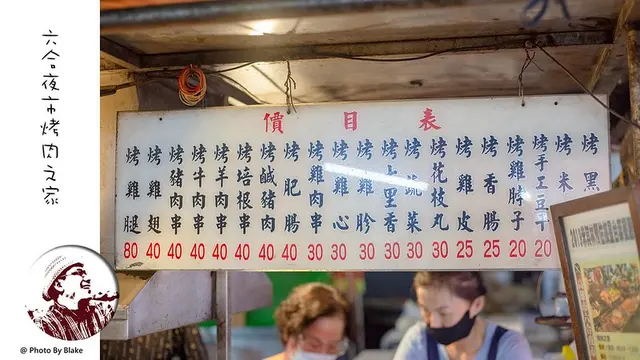 六合夜市烤肉之家
價目表
烤雞腿 80
烤雞翅 40
烤豬肉串 40
烤牛肉串 40
烤羊肉串 40
烤培根串 40
烤鹹豬肉 40
烤肥腸 40
烤雞肉串 30
烤雞心 30
烤雞胗 30
烤七里香 30
烤蔬菜 30
烤花枝丸 30
烤雞皮 25
烤香腸 25
烤雞脖子 20
烤手工豆 20
烤米
烤黑
@ Photo By Blake